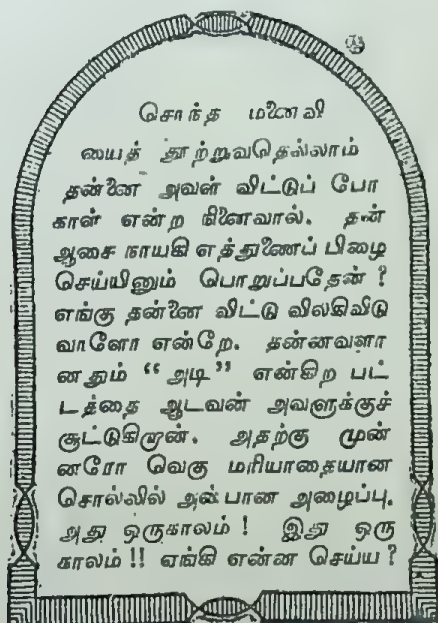 சொந்த மனைவி
யைத் தூற்றுவதெல்லாம்
தன்னை அவள் விட்டுப் போ
காள் என்ற நினைவால். தன்
ஆசை நாயகி எத்துணைப் பிழை
செய்யினும் பொறுப்பதேன் ?
எங்கு தன்னை விட்டு விலகிவிடு
வாளோ என்றே. தன்னவளா
னதும் “அடி” என்கிற பட்
டத்தை ஆடவன் அவளுக்குச்
சூட்டுகிறான். அதற்கு முன்
னரோ வெகு மரியாதையான
சொல்லில் அன்பான அழைப்பு.
அது ஒருகாலம் ! இது ஒரு
காலம் !! ஏங்கி என்ன செய்ய ?